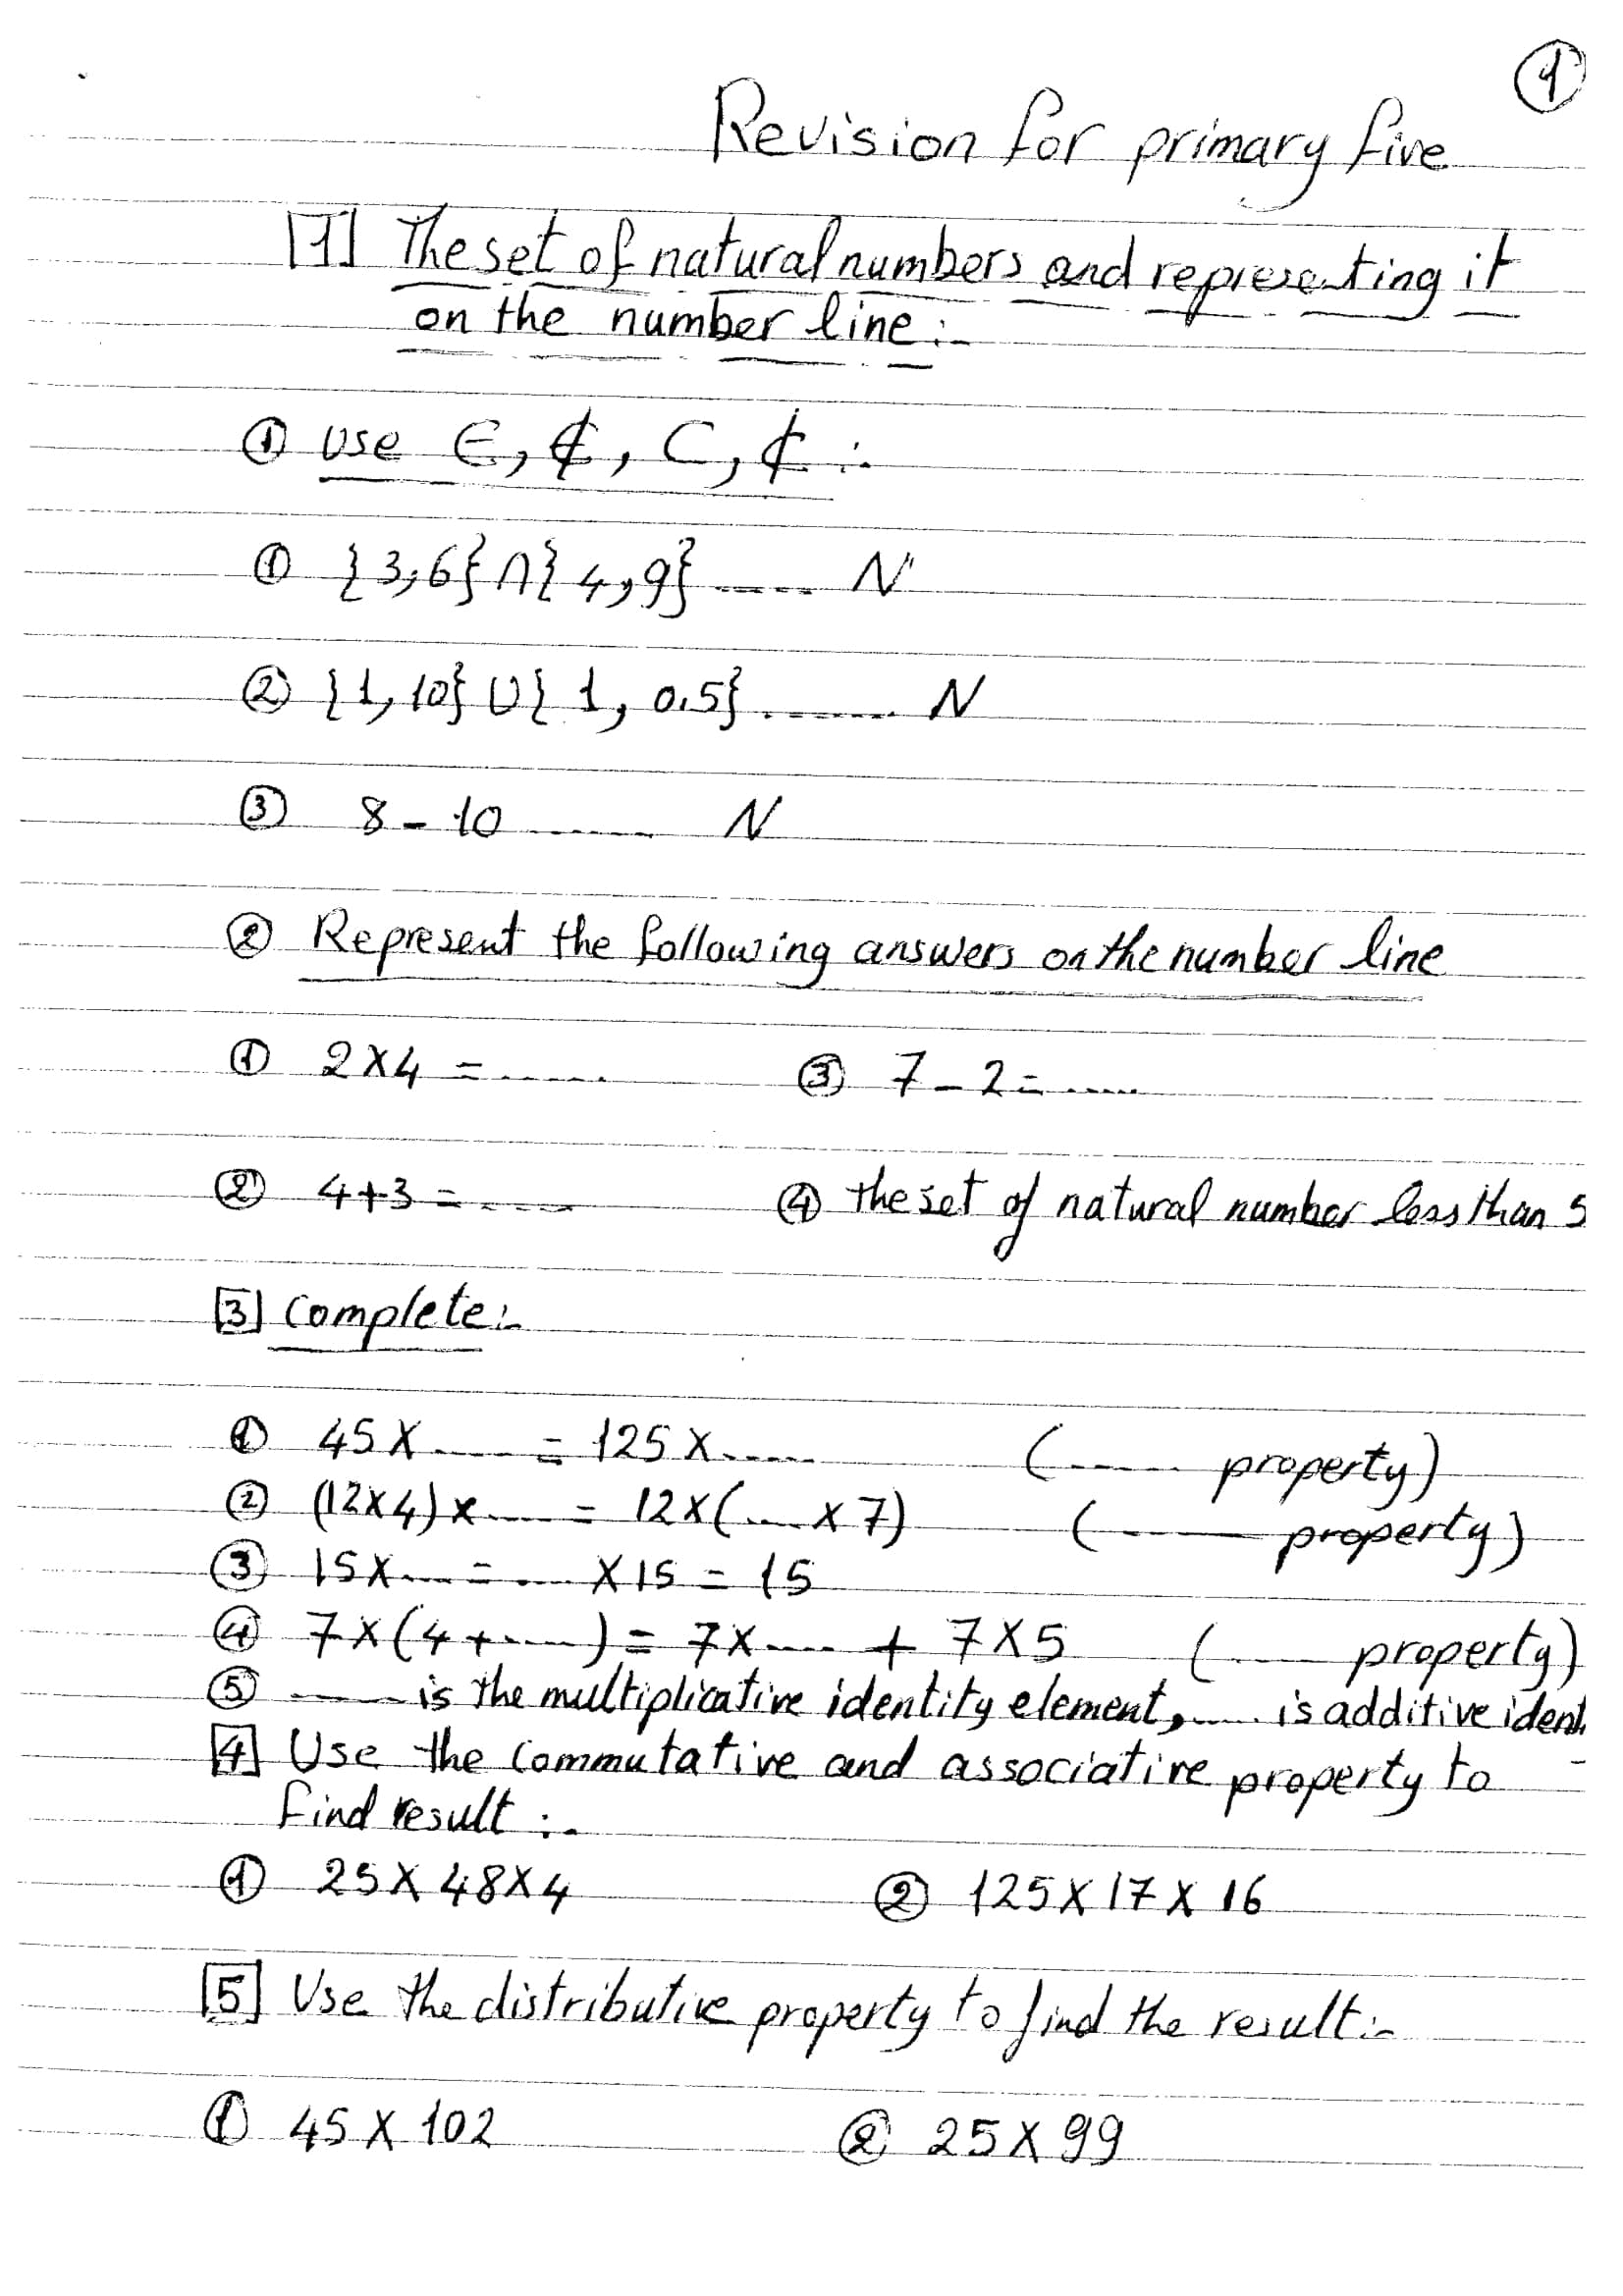 ①
Revision for primary five
[1] The set of natural numbers and representing it
on the number line:-
① Use ∈, ∉, ⊂, ⊄ :-
① {3,6} ∩ {4,9} ...... N
② {1, 10} ∪ { 1, 0.5} ........ N
③ 8 - 10 ....... N
② Represent the following answers on the number line
① 2 X 4 = ...... ③ 7 - 2 = .....
② 4 + 3 = ...... ④ the set of natural number less than 5
[3] Complete:-
① 45 X ..... = 125 X ..... (..... property)
② (12 X 4) x ..... = 12 X (.... X 7) (...... property)
③ 15 X .... = .... X 15 = 15
④ 7 X (4 + ....) = 7 X .... + 7 X 5 (.... property)
⑤ ...... is the multiplicative identity element, .... is additive ident
[4] Use the Commutative and associative property to
find result :-
① 25 X 48 X 4 ② 125 X 17 X 16
[5] Use the distributive property to find the result:-
① 45 X 102 ② 25 X 99